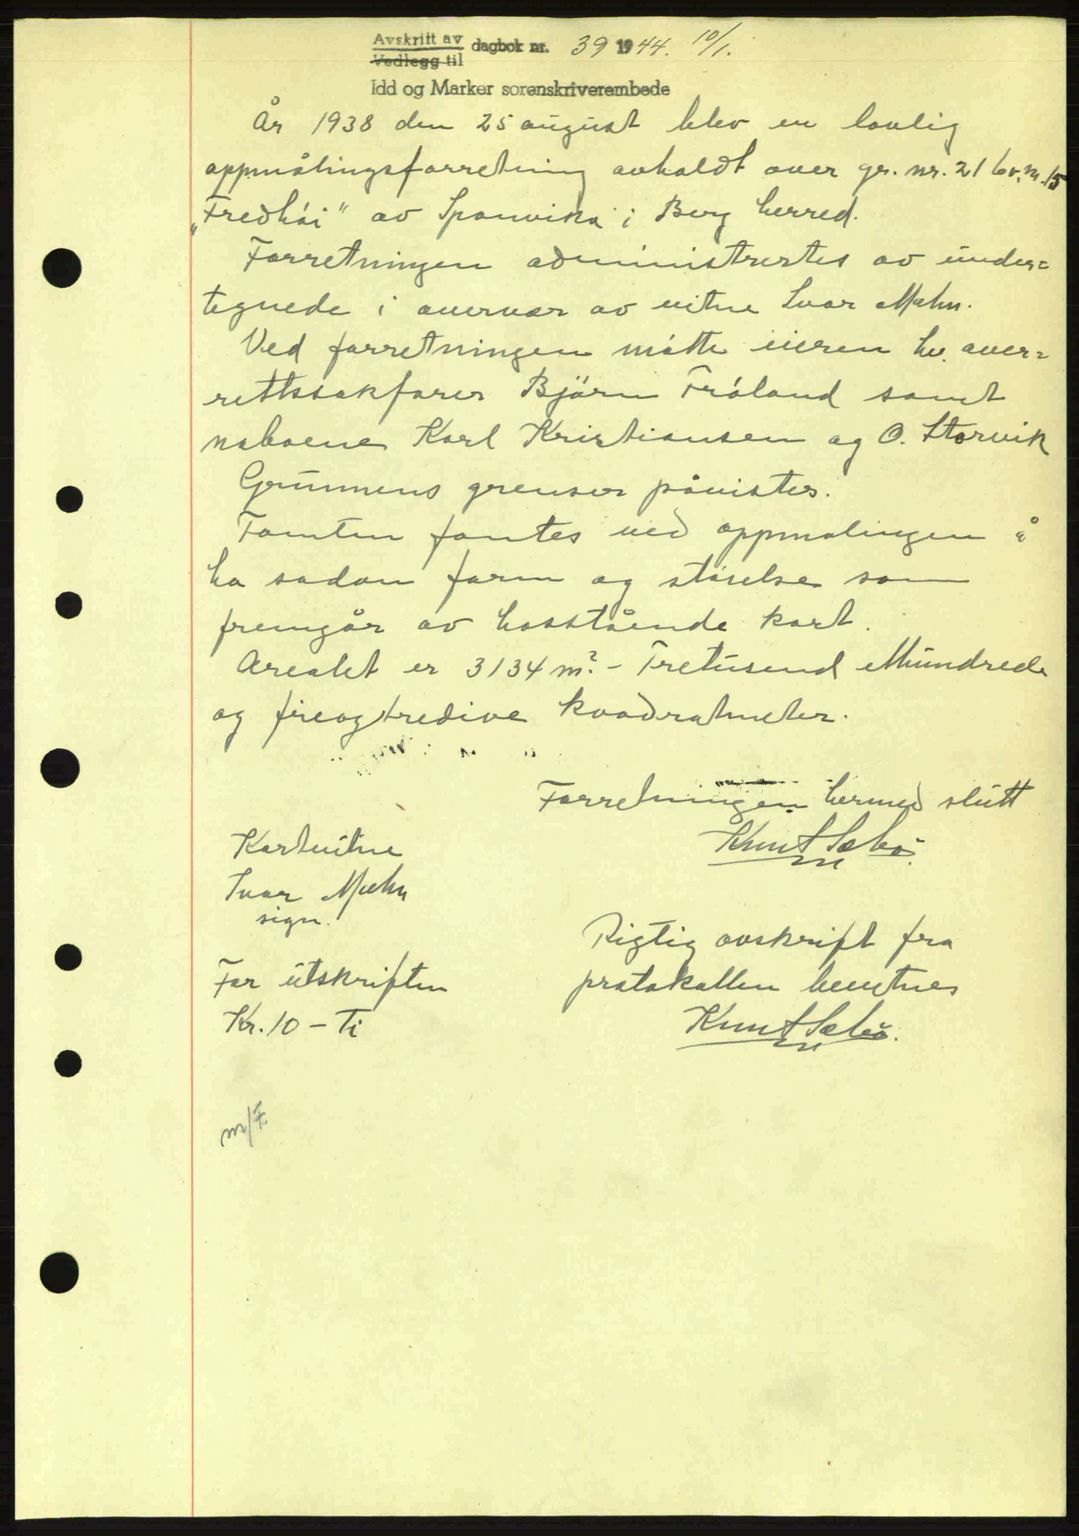 Avskrift av
Vedlegg til dagbok nr. 39 1944. 10/1.
Idd og Marker sorenskriverembede
År 1938 den 25 august blev en lovlig
oppmålingsforretning avholdt over gr. nr. 21 br. nr. 15
„Fredhøi" av Sponvika i Berg herred.
Forretningen administrertes av under=
tegnede i overvær av vitne Ivar Mæhn.
Ved forretningen møtte eieren hr. over=
rettssakfører Bjørn Frøland samt
naboene Karl Kristiansen og O. Storvik
Grunnens grenser påvistes.
Tomten fantes ved oppmålingen å
ha sådan form og størelse som
fremgår av hosstående kart.
Arealet er 3134 m². - Tretusend etthundrede
og fireogtredive kvadratmeter.
Forretningen hermed slutt
Knut Sæbø.
Kartvitne
Ivar Mæhn
sign.
Rigtig avskrift fra
protokollen bevitnes
Knut Sæbø.
For utskriften
Kr. 10 - Ti
m/F.